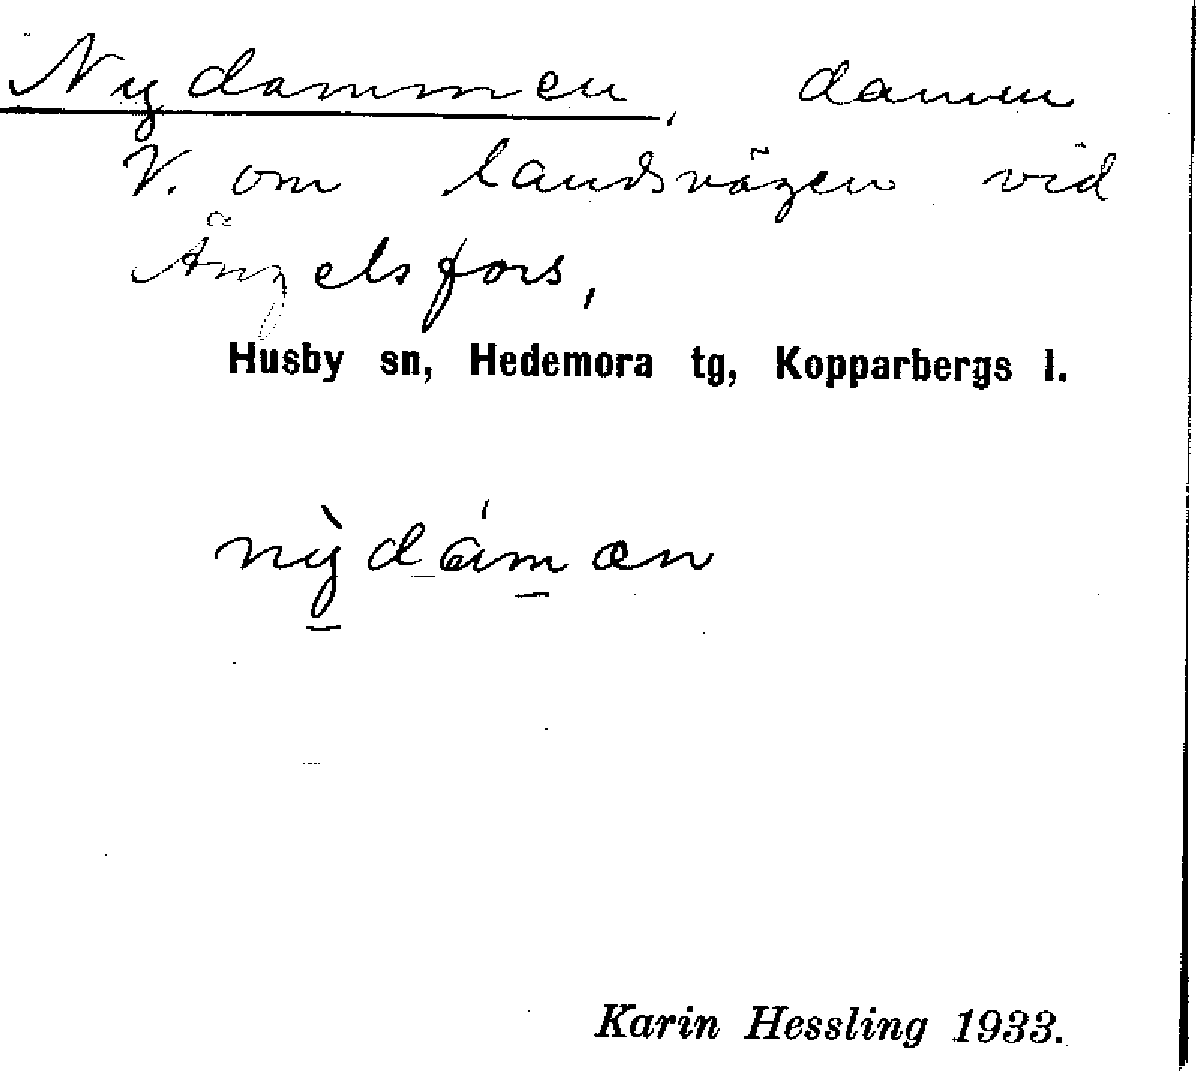 Nydammen, damm
V. om landsvägen vid
Ängelsfors,
Husby sn, Hedemora tg, Kopparbergs l.
nỳdámən
Karin Hessling 1933.